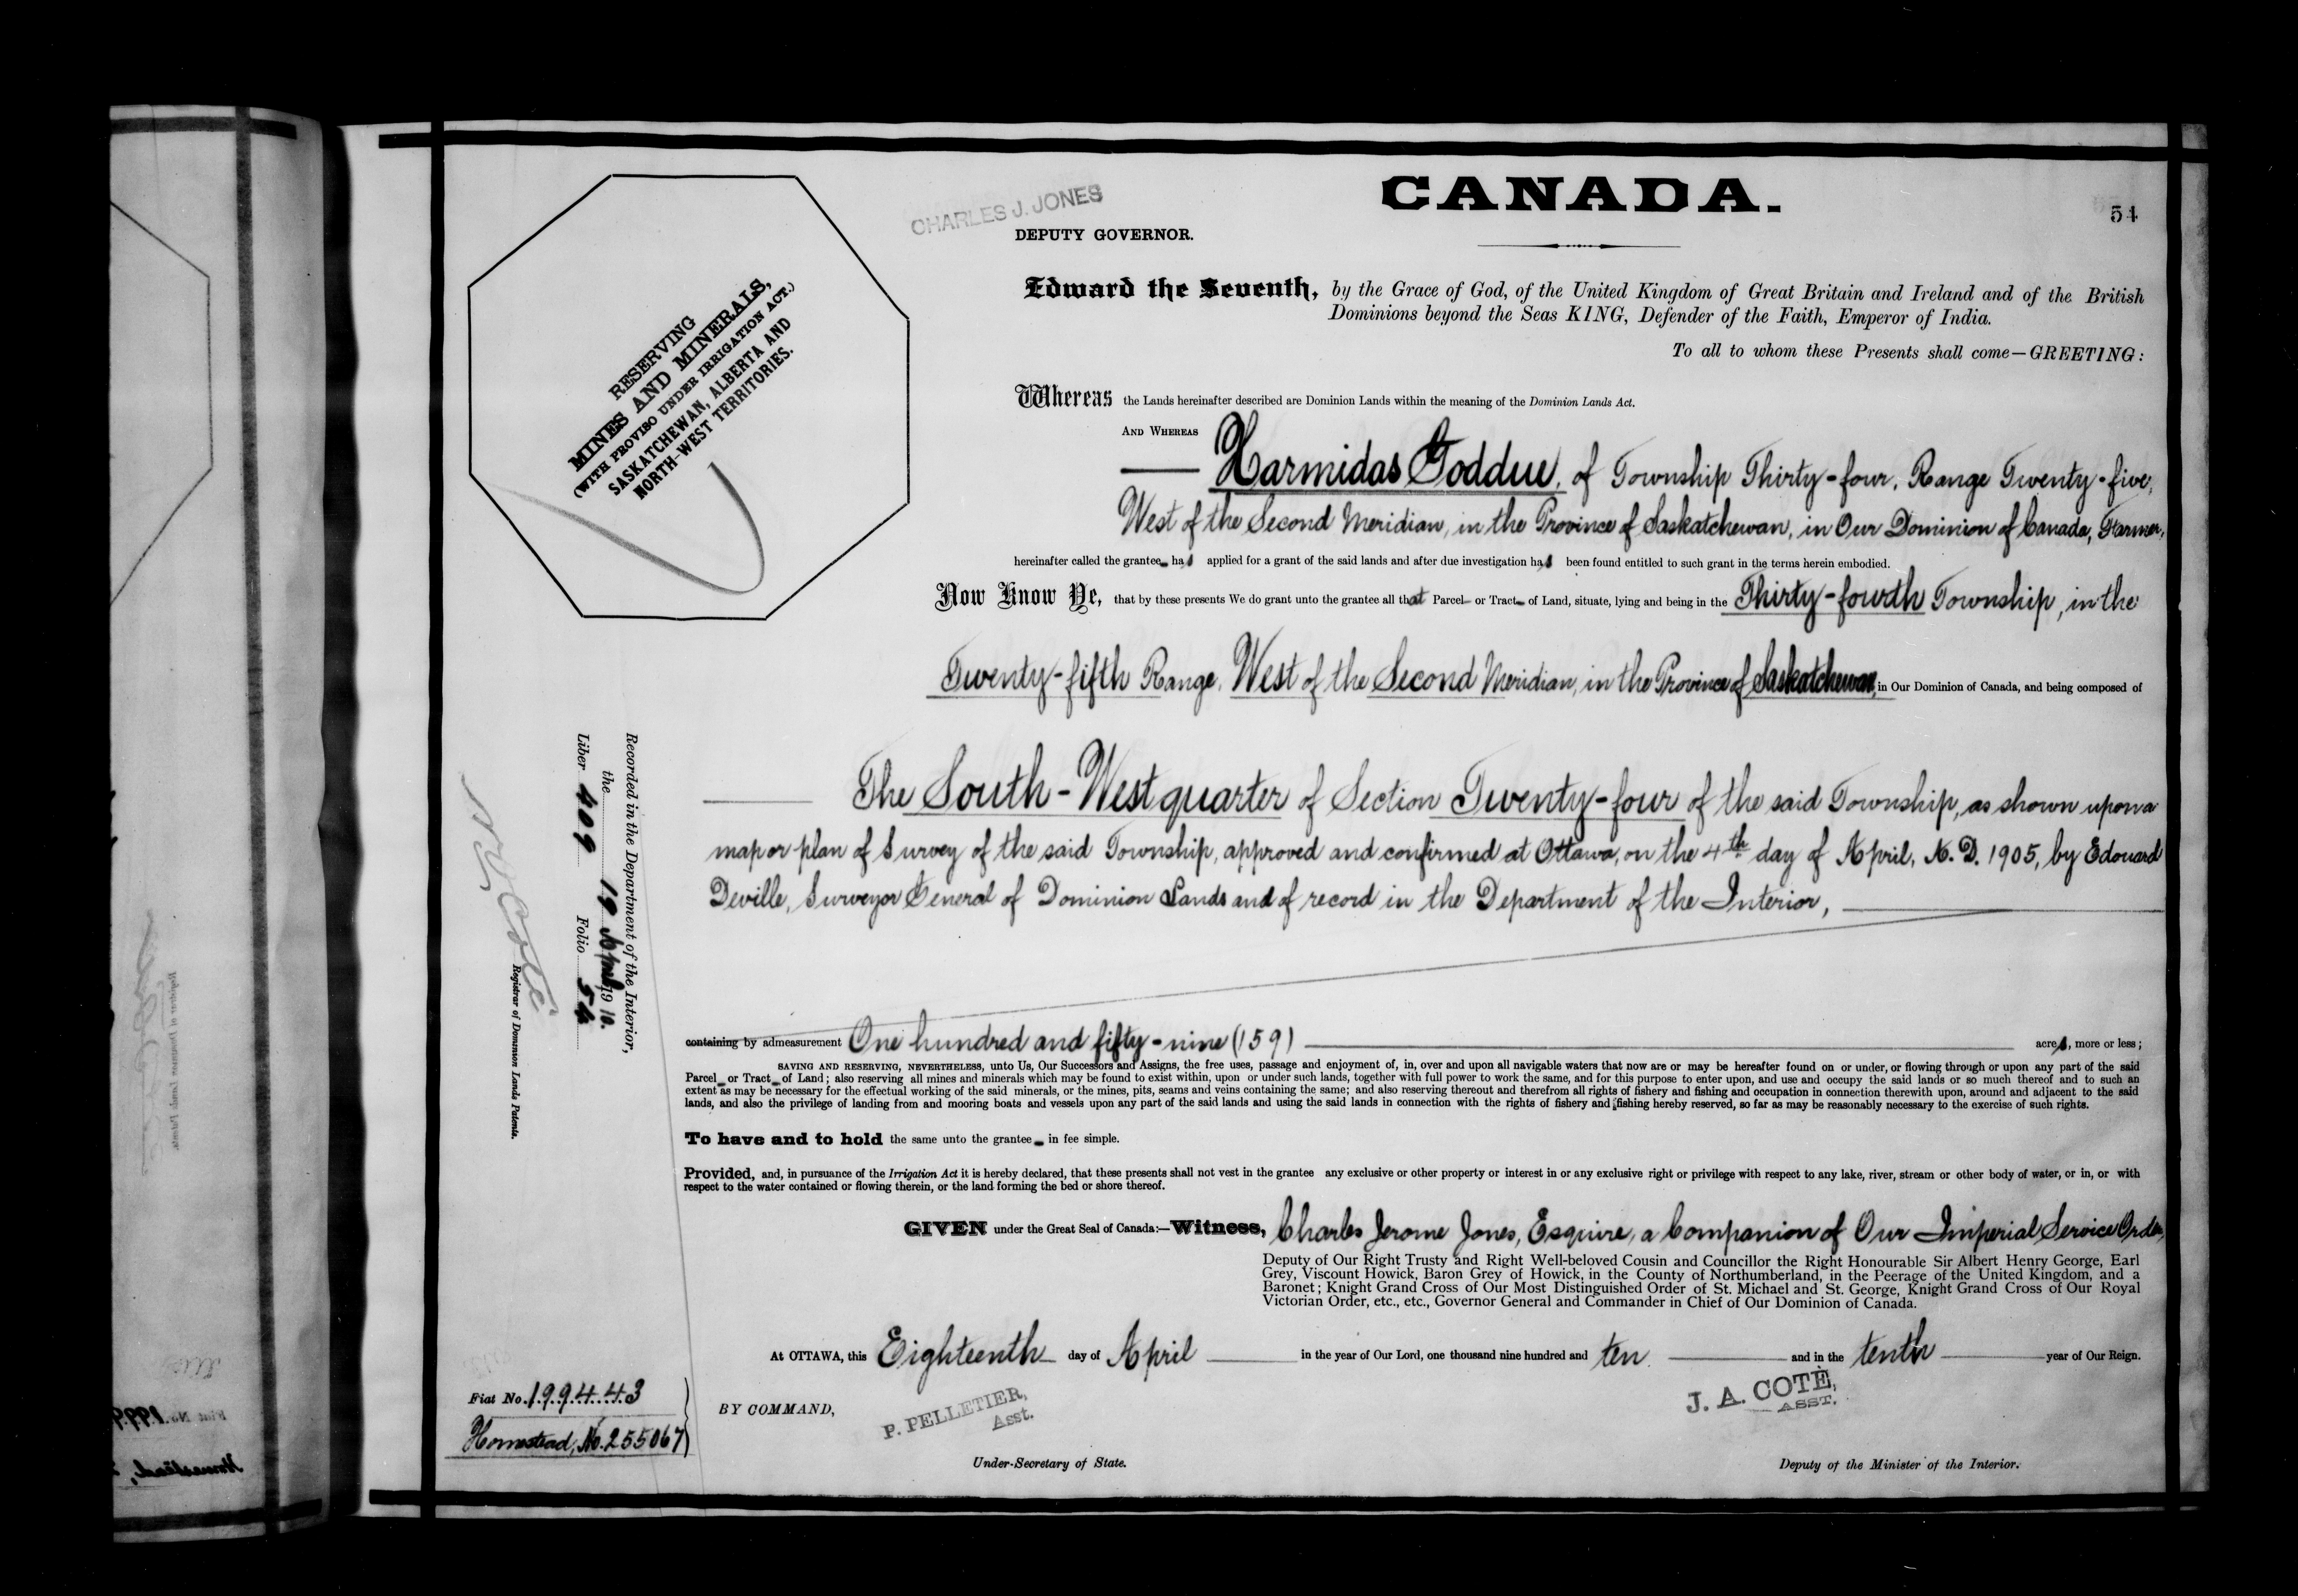 CANADA.
54
CHARLES J. JONES
DEPUTY GOVERNOR.
RESERVING
MINES AND MINERALS,
(WITH PROVISO UNDER IRRIGATION ACT.)
SASKATCHEWAN, ALBERTA AND
NORTH-WEST TERRITORIES.
Edward the Seventh, by the Grace of God, of the United Kingdom of Great Britain and Ireland and of the British
Dominions beyond the Seas KING, Defender of the Faith, Emperor of India.
To all to whom these Presents shall come—GREETING:
Whereas the Lands hereinafter described are Dominion Lands within the meaning of the Dominion Lands Act.
AND WHEREAS
Harmidas Goddue, of Township Thirty-four, Range Twenty-five,
West of the Second Meridian, in the Province of Saskatchewan, in Our Dominion of Canada, Farmer,
hereinafter called the grantee has applied for a grant of the said lands and after due investigation has been found entitled to such grant in the terms herein embodied.
Now Know Ye, that by these presents We do grant unto the grantee all that Parcel or Tract of Land, situate, lying and being in the Thirty-fourth Township, in the
Twenty-fifth Range, West of the Second Meridian, in the Province of Saskatchewan, in Our Dominion of Canada, and being composed of
The South-West quarter of Section Twenty-four of the said Township, as shown upon a
map or plan of Survey of the said Township, approved and confirmed at Ottawa, on the 4th day of April, A.D. 1905, by Edouard
Deville, Surveyor General of Dominion Lands and of record in the Department of the Interior,
containing by admeasurement One hundred and fifty-nine (159) acres, more or less;
SAVING AND RESERVING, NEVERTHELESS, unto Us, Our Successors and Assigns, the free uses, passage and enjoyment of, in, over and upon all navigable waters that now are or may be hereafter found on or under, or flowing through or upon any part of the said
Parcel or Tract of Land; also reserving all mines and minerals which may be found to exist within, upon or under such lands, together with full power to work the same, and for this purpose to enter upon, and use and occupy the said lands or so much thereof and to such an
extent as may be necessary for the effectual working of the said minerals, or the mines, pits, seams and veins containing the same; and also reserving thereout and therefrom all rights of fishery and fishing and occupation in connection therewith upon, around and adjacent to the said
lands, and also the privilege of landing from and mooring boats and vessels upon any part of the said lands and using the said lands in connection with the rights of fishery and fishing hereby reserved, so far as may be reasonably necessary to the exercise of such rights.
To have and to hold the same unto the grantee in fee simple.
Provided, and, in pursuance of the Irrigation Act it is hereby declared, that these presents shall not vest in the grantee any exclusive or other property or interest in or any exclusive right or privilege with respect to any lake, river, stream or other body of water, or in, or with
respect to the water contained or flowing therein, or the land forming the bed or shore thereof.
GIVEN under the Great Seal of Canada:—Witness, Charles Jerome Jones, Esquire, a Companion of Our Imperial Service Order,
Deputy of Our Right Trusty and Right Well-beloved Cousin and Councillor the Right Honourable Sir Albert Henry George, Earl
Grey, Viscount Howick, Baron Grey of Howick, in the County of Northumberland, in the Peerage of the United Kingdom, and a
Baronet; Knight Grand Cross of Our Most Distinguished Order of St. Michael and St. George, Knight Grand Cross of Our Royal
Victorian Order, etc., etc., Governor General and Commander in Chief of Our Dominion of Canada.
At OTTAWA, this Eighteenth day of April in the year of Our Lord, one thousand nine hundred and ten and in the tenth year of Our Reign.
BY COMMAND,
P. PELLETIER,
Asst.
Under-Secretary of State.
J. A. COTÉ,
ASST.
Deputy of the Minister of the Interior.
Recorded in the Department of the Interior,
the 19 April 1910.
Liber 409 Folio 54
Coté
Registrar of Dominion Lands Patents.
Fiat No. 199443
Homestead, No. 255067